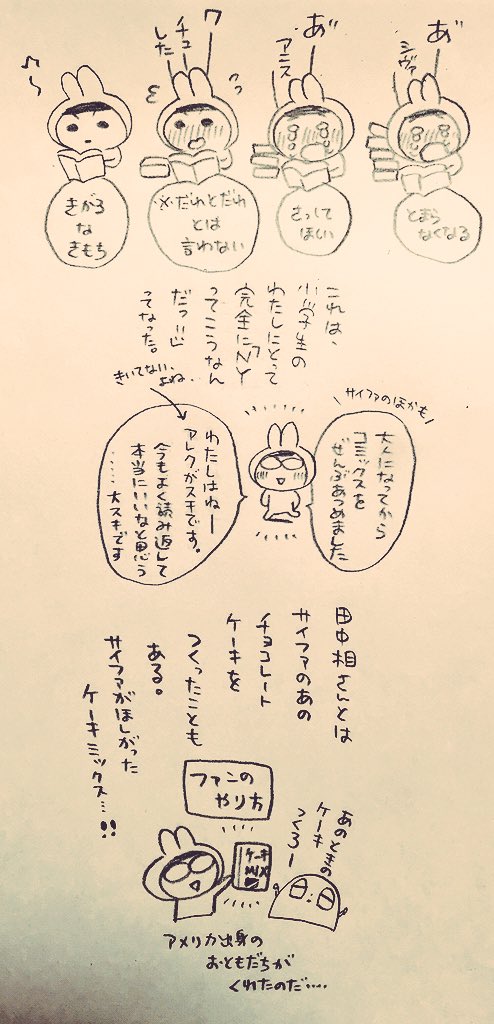 きがる
な
きもち
ワ
チュー
した
※だれとだれ
とは
言わない
あ゛
アニス
さっして
ほしい
あ゛
シヴァ
とまら
なくなる
これは、
小学生の
わたしにとって
完全にNY
ってこうなん
だっ!!
ってなった。
サイファのほかも
大人になってから
コミックスを
ぜんぶあつめました
きいてない、
よね、
わたしはねー
アレクがスキです。
今もよく読み返して
本当にいいなと思う
……大スキです
田中相さんとは
サイファのあの
チョコレート
ケーキを
つくったことも
ある。
サイファがほしがった
ケーキミックス…!!
ファンの
やり方
あのときの
ケーキ
つくろー
ケーキ
MIX
アメリカ出身の
おともだちが
くれたのだ....